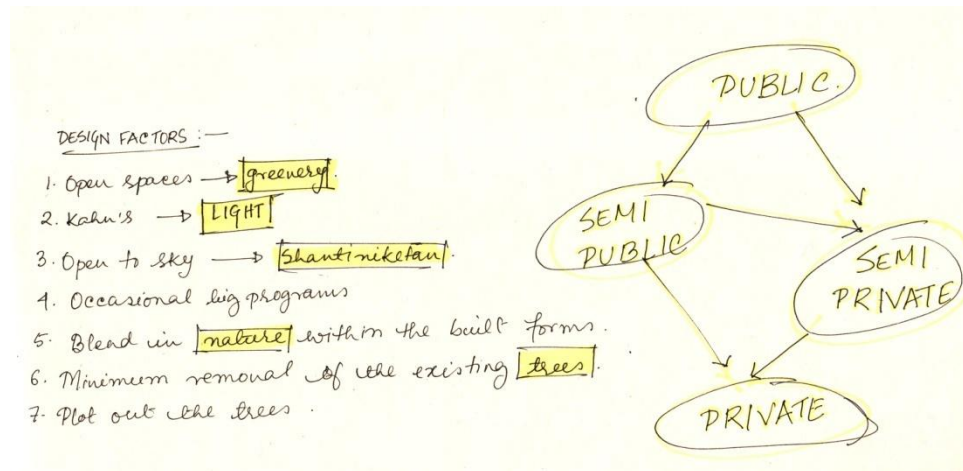 DESIGN FACTORS :—
1. Open spaces → greenery.
2. Kahn's → LIGHT
3. Open to sky → Shantiniketan.
4. Occasional big programs
5. Blend in nature within the built forms.
6. Minimum removal of the existing trees.
7. Plot out the trees.
PUBLIC.
SEMI
PUBLIC
SEMI
PRIVATE
PRIVATE